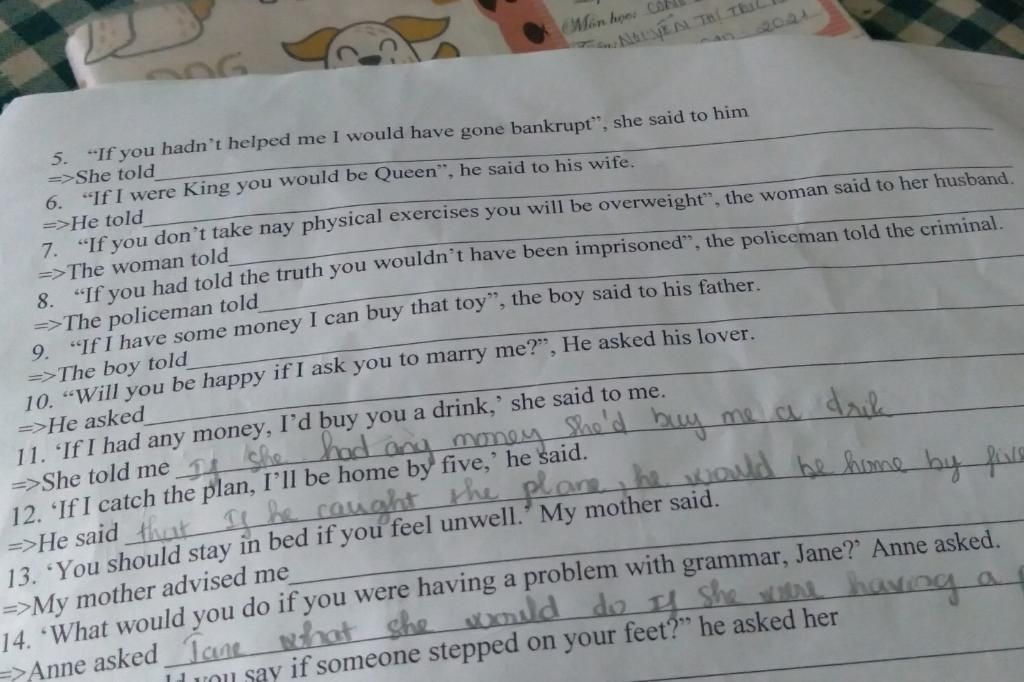 DOG
Môn học:
NGUYỄN THỊ
2021
5. “If you hadn't helped me I would have gone bankrupt”, she said to him
=>She told
6. “If I were King you would be Queen”, he said to his wife.
=>He told
7. “If you don't take nay physical exercises you will be overweight”, the woman said to her husband.
=>The woman told
8. “If you had told the truth you wouldn't have been imprisoned”, the policeman told the criminal.
=>The policeman told
9. “If I have some money I can buy that toy”, the boy said to his father.
=>The boy told
10. “Will you be happy if I ask you to marry me?”, He asked his lover.
=>He asked
11. ‘If I had any money, I'd buy you a drink,’ she said to me.
=>She told me If she had any money she'd buy me a drik
12. ‘If I catch the plan, I'll be home by five,’ he said.
=>He said that If he caught the plane, he would be home by five
13. ‘You should stay in bed if you feel unwell.’ My mother said.
=>My mother advised me
14. ‘What would you do if you were having a problem with grammar, Jane?’ Anne asked.
=>Anne asked Jane what she would do If she were having a
you say if someone stepped on your feet?” he asked her